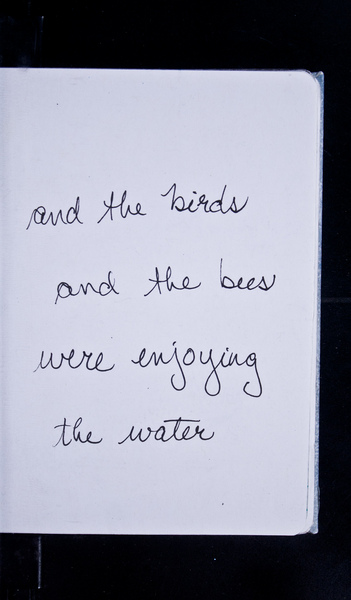 and the birds
and the bees
were enjoying
the water